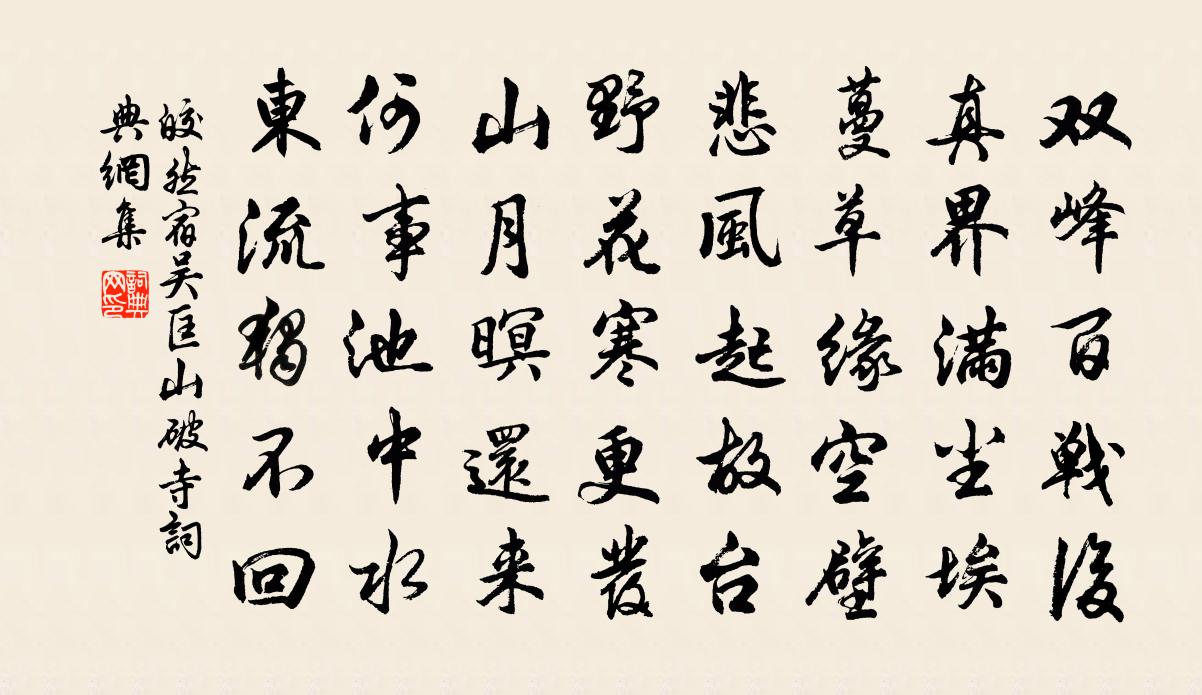 双峰百戦後
真界满尘埃
蔓草緣空壁
悲風起故台
野花寒更發
山月暝還来
何事池中水
東流獨不回
皎然宿吴匡山破寺詞
典網集
詞典
网印